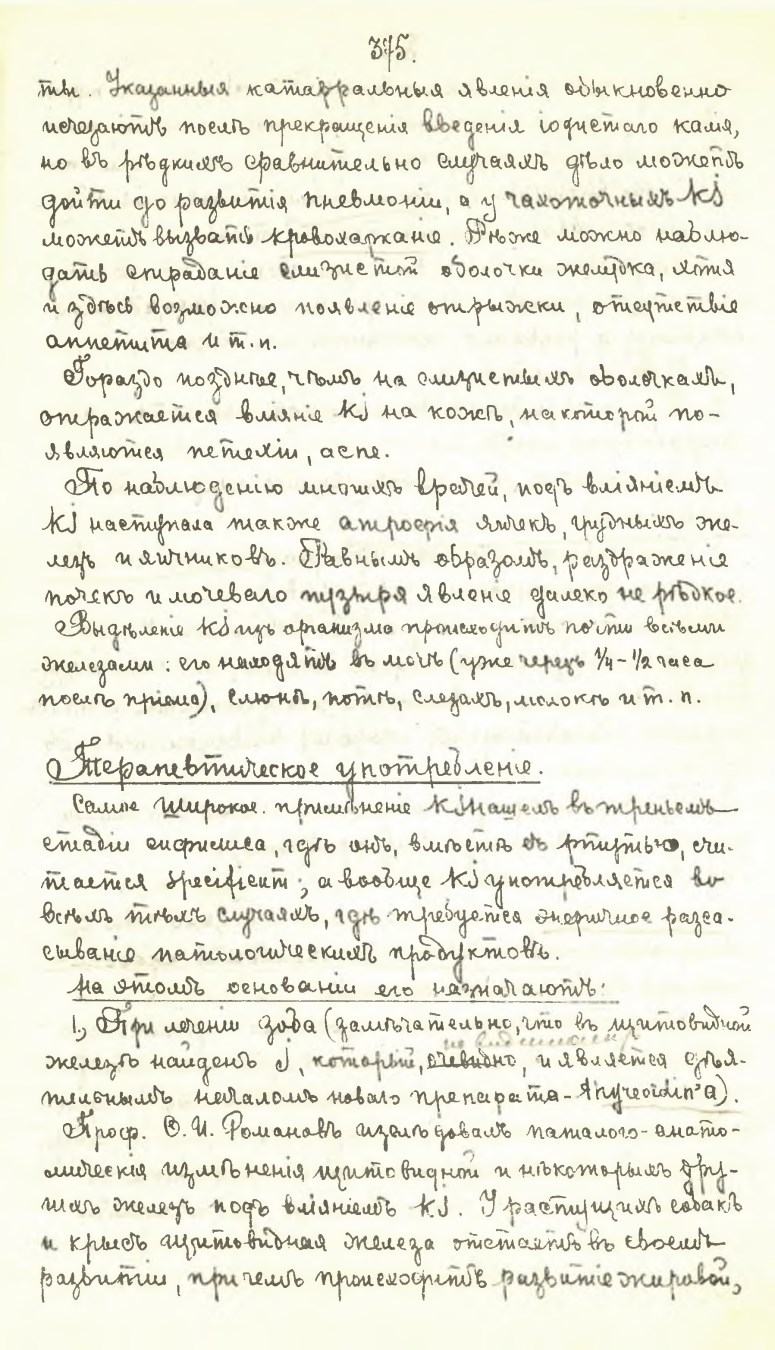 375.
ты. Указанныя катарральныя явленія обыкновенно
исчезаютъ послѣ прекращенія введенія іодистаго калія,
но въ рѣдкихъ сравнительно случаяхъ дѣло можетъ
дойти до развитія пневмоніи, а у чахоточныхъ KJ
можетъ вызвать кровохарканіе. Рѣже можно наблю-
дать страданіе слизистой оболочки желудка, хотя
и здѣсь возможно появленіе отрыжки, отсутствіе
аппетита и т. п.
Гораздо позднѣе, чѣмъ на слизистыхъ оболочкахъ,
отражается вліяніе KJ на кожѣ, на которой по-
являются петехіи, acne.
По наблюденію многихъ врачей, подъ вліяніемъ
KJ наступала также атрофія яичекъ, грудныхъ же-
лезъ и яичниковъ. Равнымъ образомъ, раздраженіе
почекъ и мочевого пузыря явленіе далеко не рѣдкое.
Выдѣленіе KJ изъ организма происходитъ почти всѣми
железами: его находятъ въ мочѣ (уже черезъ 1/4 - 1/2 часа
послѣ пріема), слюнѣ, потѣ, слезахъ, молокѣ и т. п.
Терапевтическое употребленіе.
Самое широкое примѣненіе KJ нашелъ въ третьемъ
стадіи сифилиса, гдѣ онъ, вмѣстѣ съ ртутью, счи-
тается specificum; а вообще KJ употребляется во
всѣхъ тѣхъ случаяхъ, гдѣ требуется энергичное разса-
сываніе патологическихъ продуктовъ.
На этомъ основаніи его назначаютъ:
1., При леченіи зоба (замѣчательно, что въ щитовидной
железѣ найденъ J, который, очевидно, и является дѣя-
тельнымъ началомъ новаго препарата - Thyreoidin'a).
Проф. Ѳ. И. Романовъ изслѣдовалъ паталого-анато-
мическія измѣненія щитовидной и нѣкоторыхъ дру-
гихъ железъ подъ вліяніемъ KJ. У растущихъ собакъ
и крысъ щитовидная железа отстаетъ въ своемъ
развитіи, причемъ происходитъ развитіе жировой,